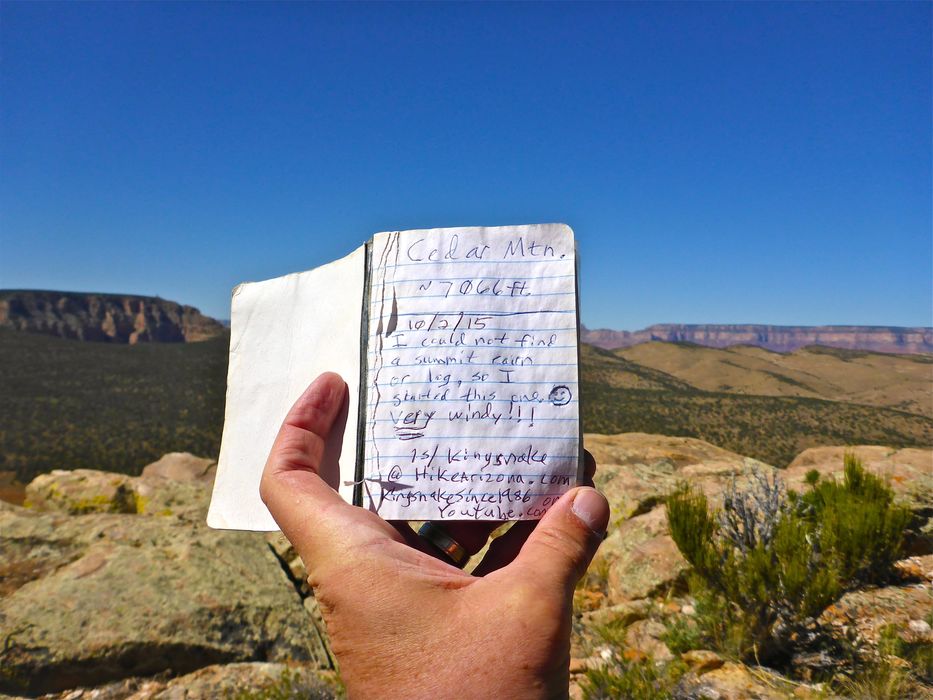 Cedar Mtn.
~7066ft.
10/2/15
I could not find
a summit cairn
or log, so I
started this one.
Very windy!!!
/s/ Kingsnake
@ HikeArizona.com
KingsnakeSince1986 on
Youtube.com